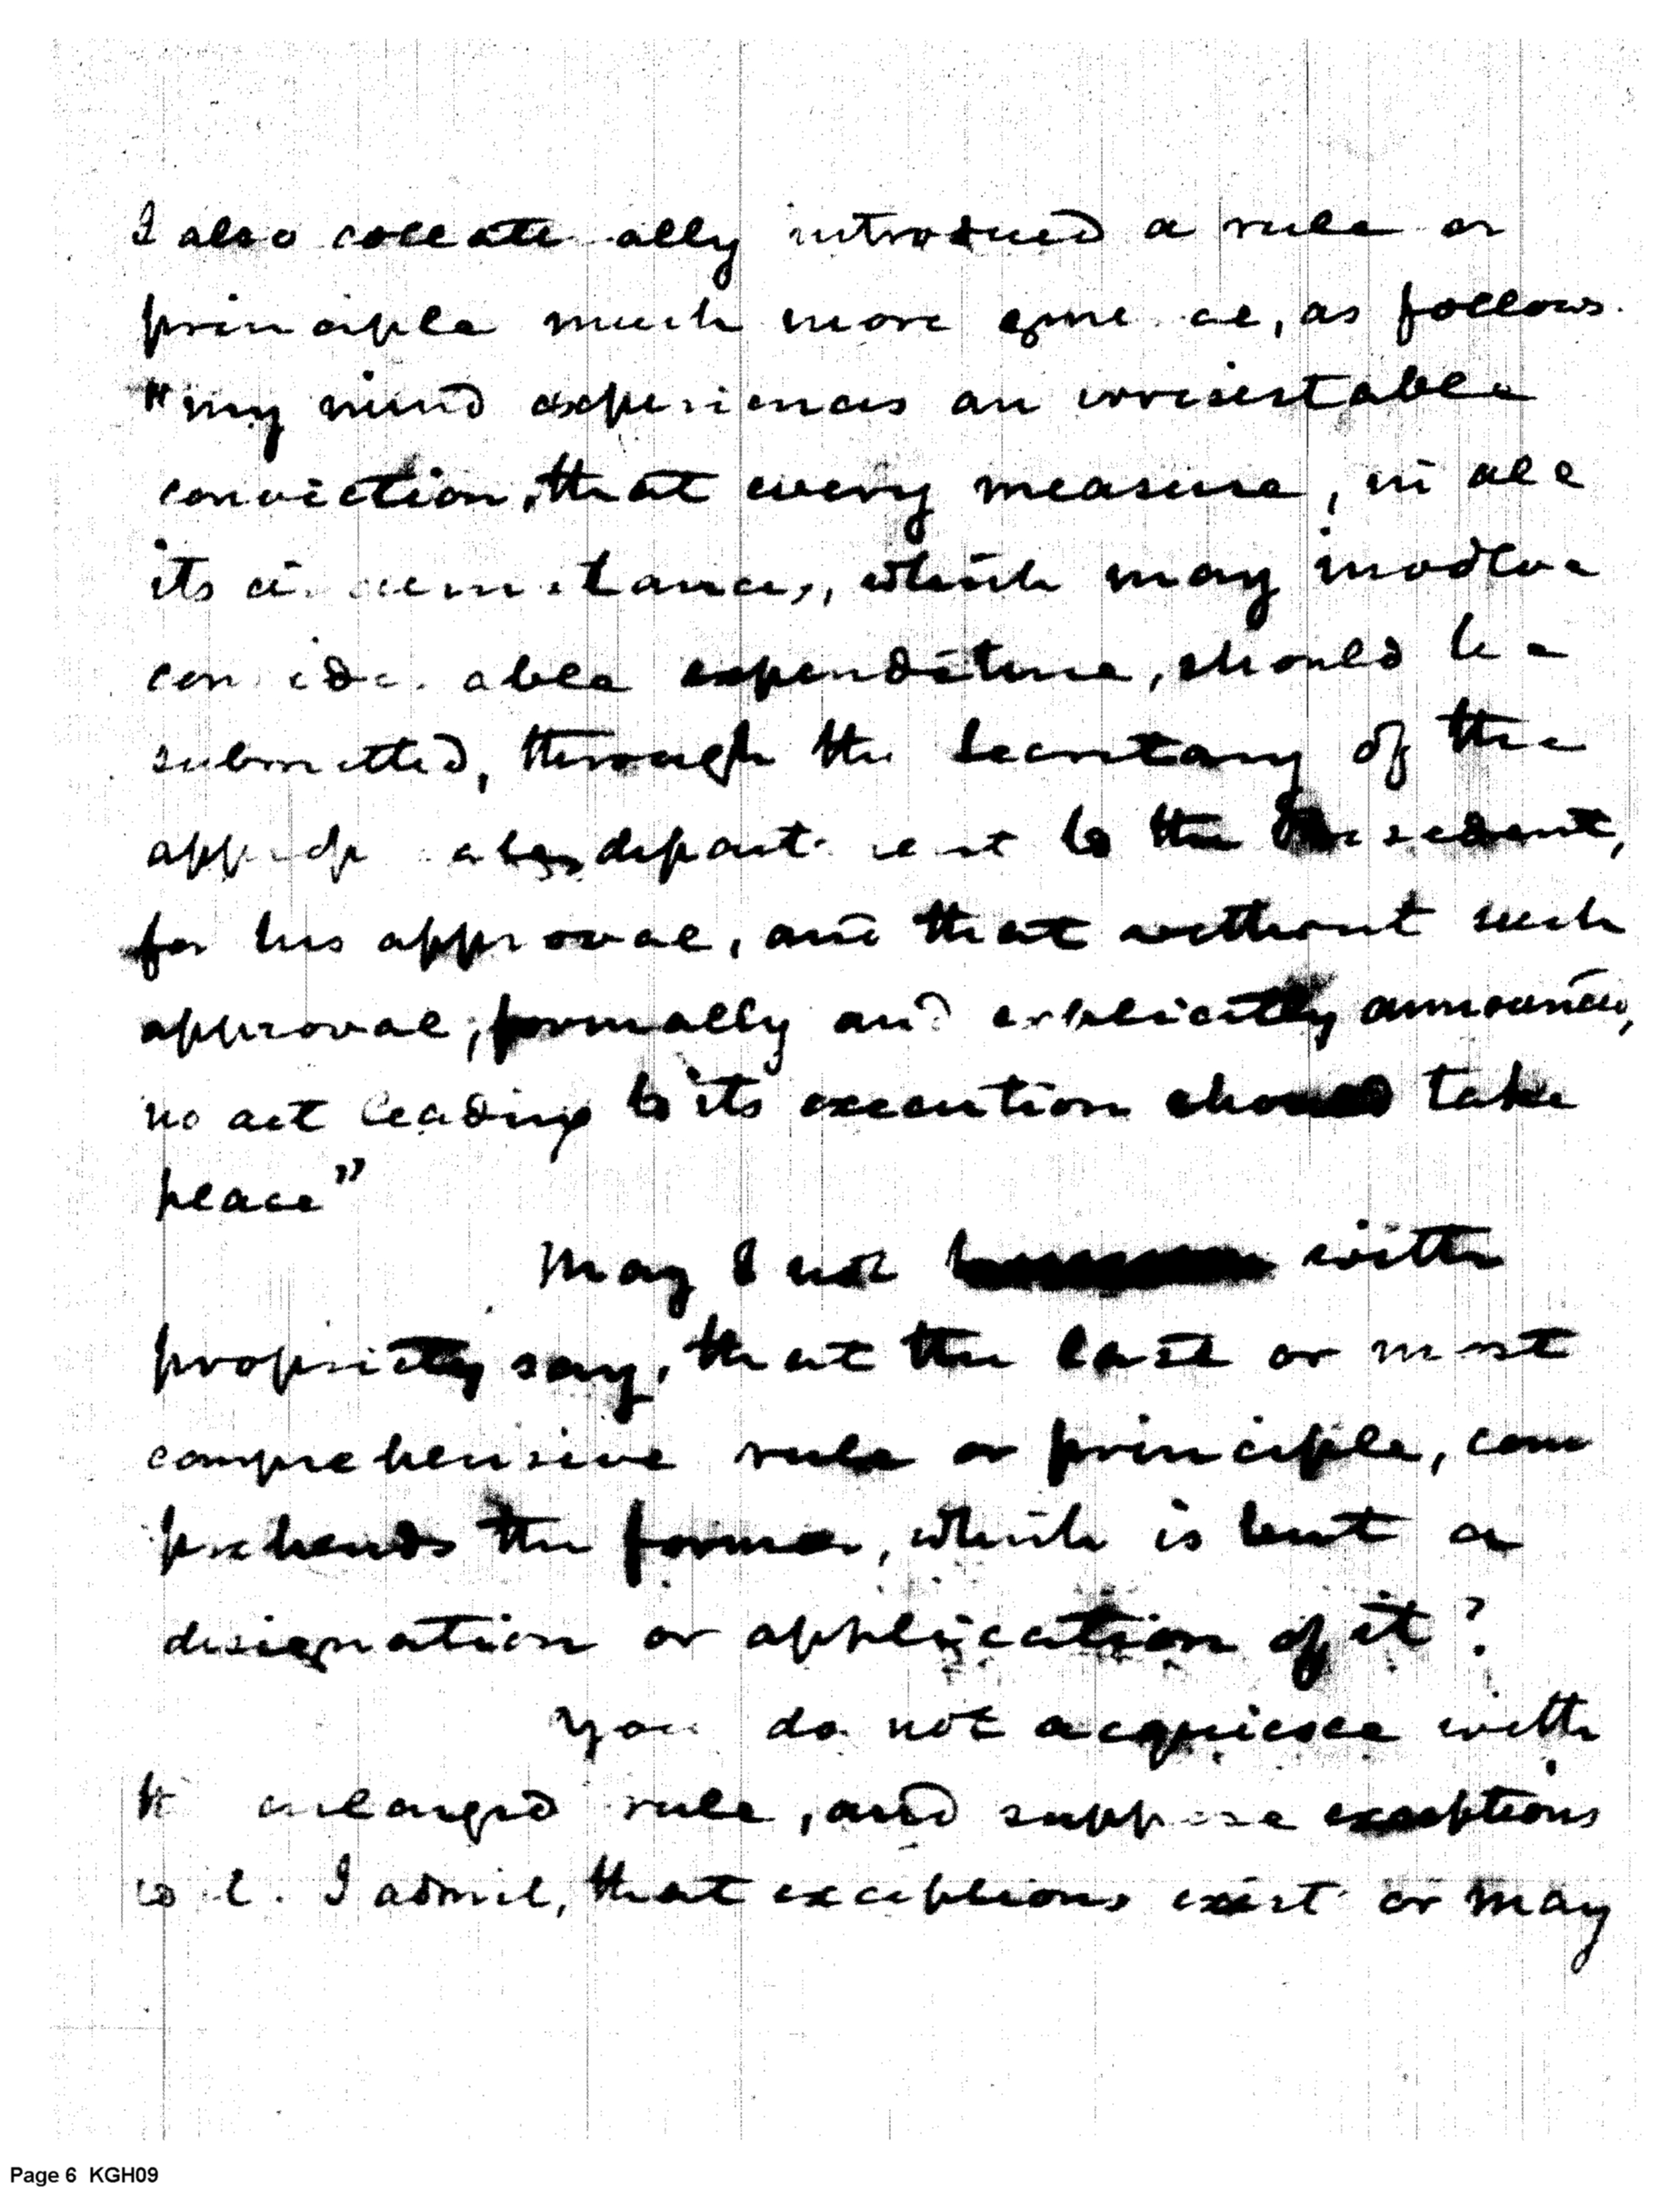 I also collaterally introdued a rule or
principle much more general, as follows.
"my mind experiences an irresistable
conviction, that every measure, in all
its circumstances, which may involve
considerable expenditure, should be
submitted, through the Secretary of the
department to the President,
for his approval, and that without such
approval, formally and explicitly announced,
no act leading to its execution should take
place"
May I not with
propriety say, that the last or most
comprehensive rule or principle, com
prehends the former, which is but a
designation or application of it?
You do not acquiesce with
enlarged rule, and suppose exceptions
to it. I admit, that exceptions exist or may
Page 6 KGH09